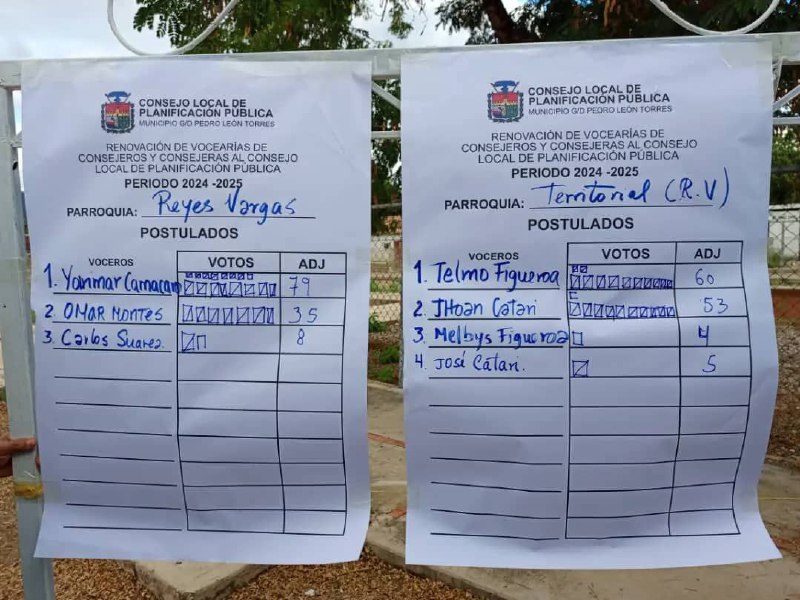 CONSEJO LOCAL DE
PLANIFICACIÓN PÚBLICA
MUNICIPIO G/D PEDRO LEÓN TORRES
RENOVACIÓN DE VOCERÍAS DE
CONSEJEROS Y CONSEJERAS AL CONSEJO
LOCAL DE PLANIFICACIÓN PÚBLICA
PERIODO 2024 -2025
PARROQUIA: Reyes Vargas
POSTULADOS
VOCEROS VOTOS ADJ
1. Yanimar Camacaro 79
2. OMAR MONTES 35
3. Carlos Suarez. 8
CONSEJO LOCAL DE
PLANIFICACIÓN PÚBLICA
MUNICIPIO G/D PEDRO LEÓN TORRES
RENOVACIÓN DE VOCEARÍAS DE
CONSEJEROS Y CONSEJERAS AL CONSEJO
LOCAL DE PLANIFICACIÓN PÚBLICA
PERIODO 2024 -2025
PARROQUIA: Territorial (R.V)
POSTULADOS
VOCEROS VOTOS ADJ
1. Telmo Figueroa 60
2. JHoan Catari 53
3. Melbys Figueroa 4
4. José Catari. 5